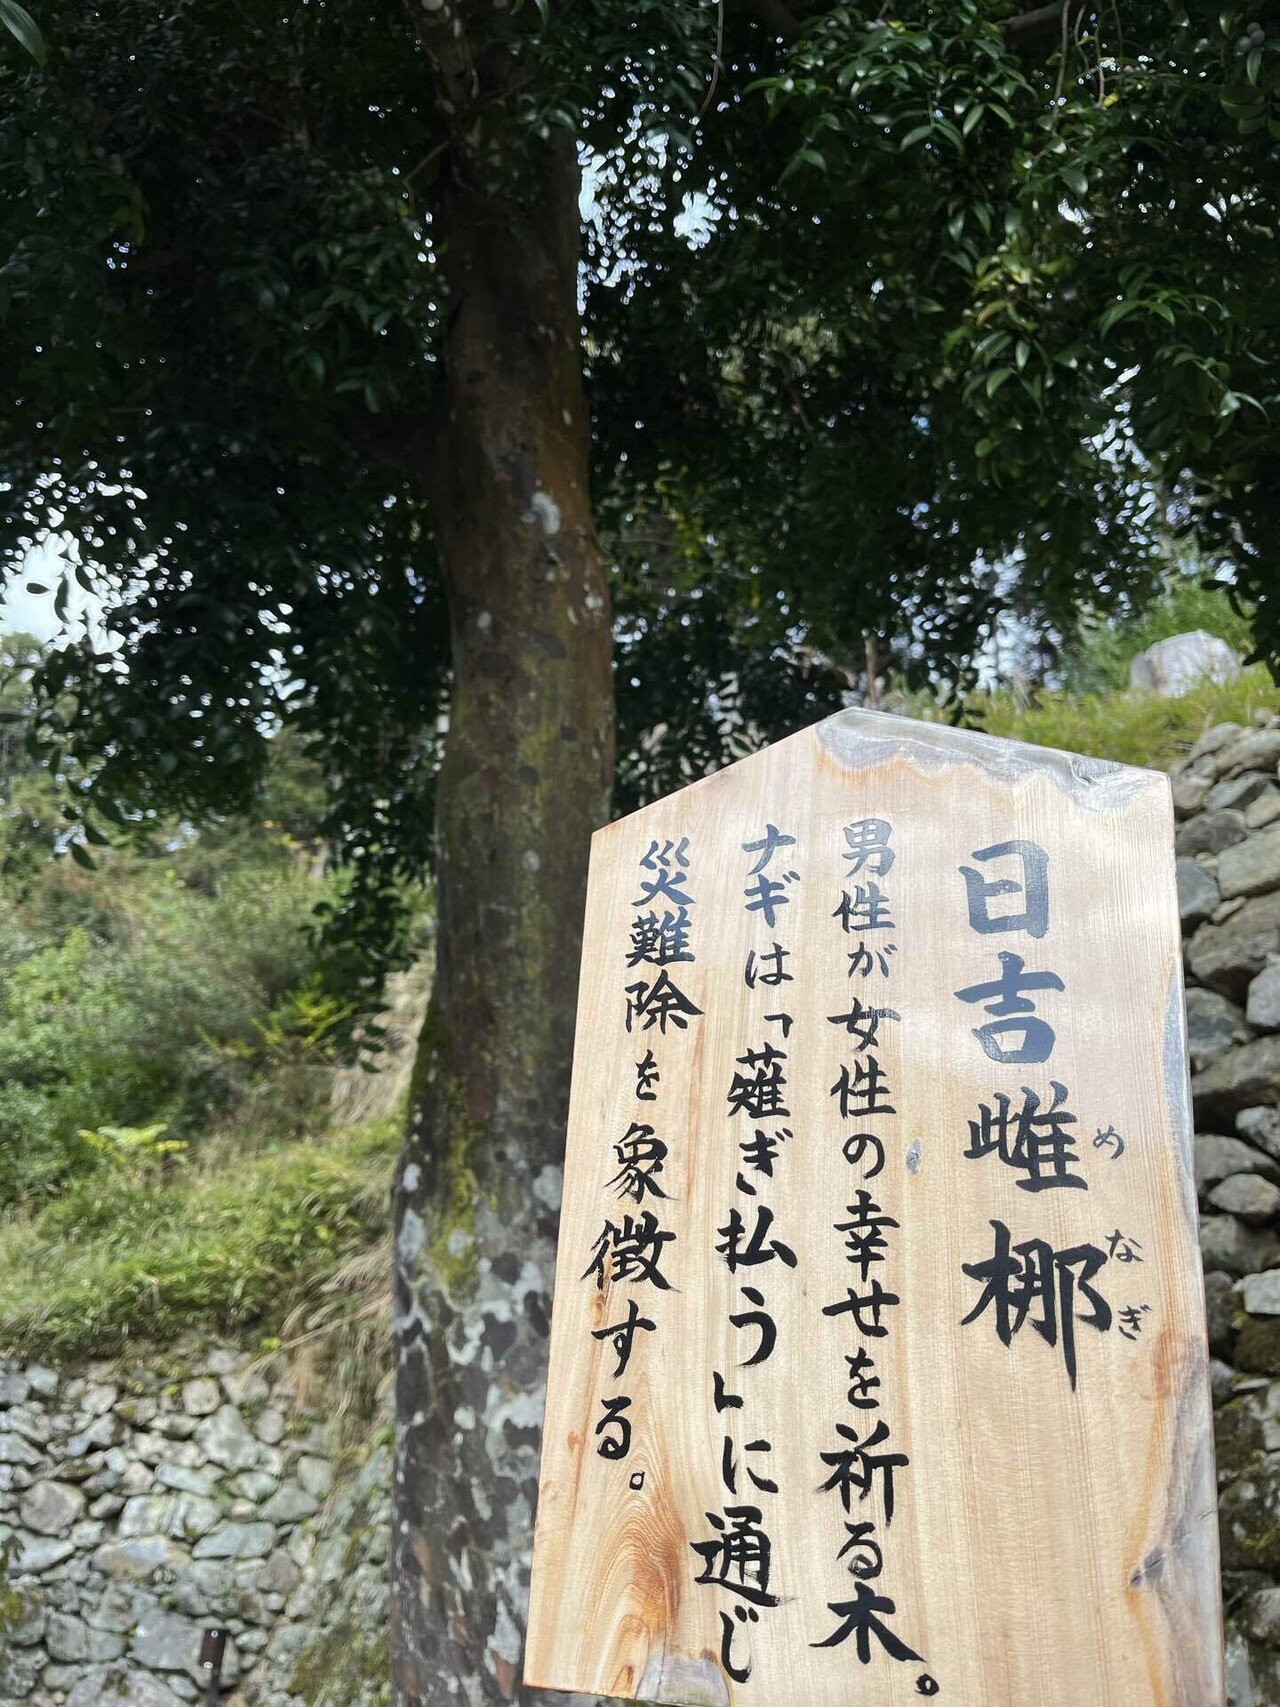 日吉雌梛
めなぎ
男性が女性の幸せを祈る木。
ナギは「薙ぎ払う」に通じ
災難除を象徴する。